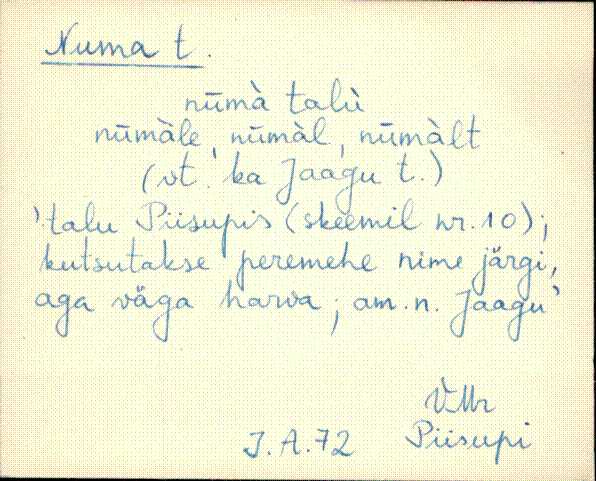 Numa t.
nūmà talù
nūmàle, nūmàl, nūmàlt
(vt. ka Jaagu t.)
'talu Piisupis (skeemil nr. 10);
kutsutakse peremehe nime järgi,
aga väga harva; am. n. Jaagu'
VMr
J. A. 72 Piisupi